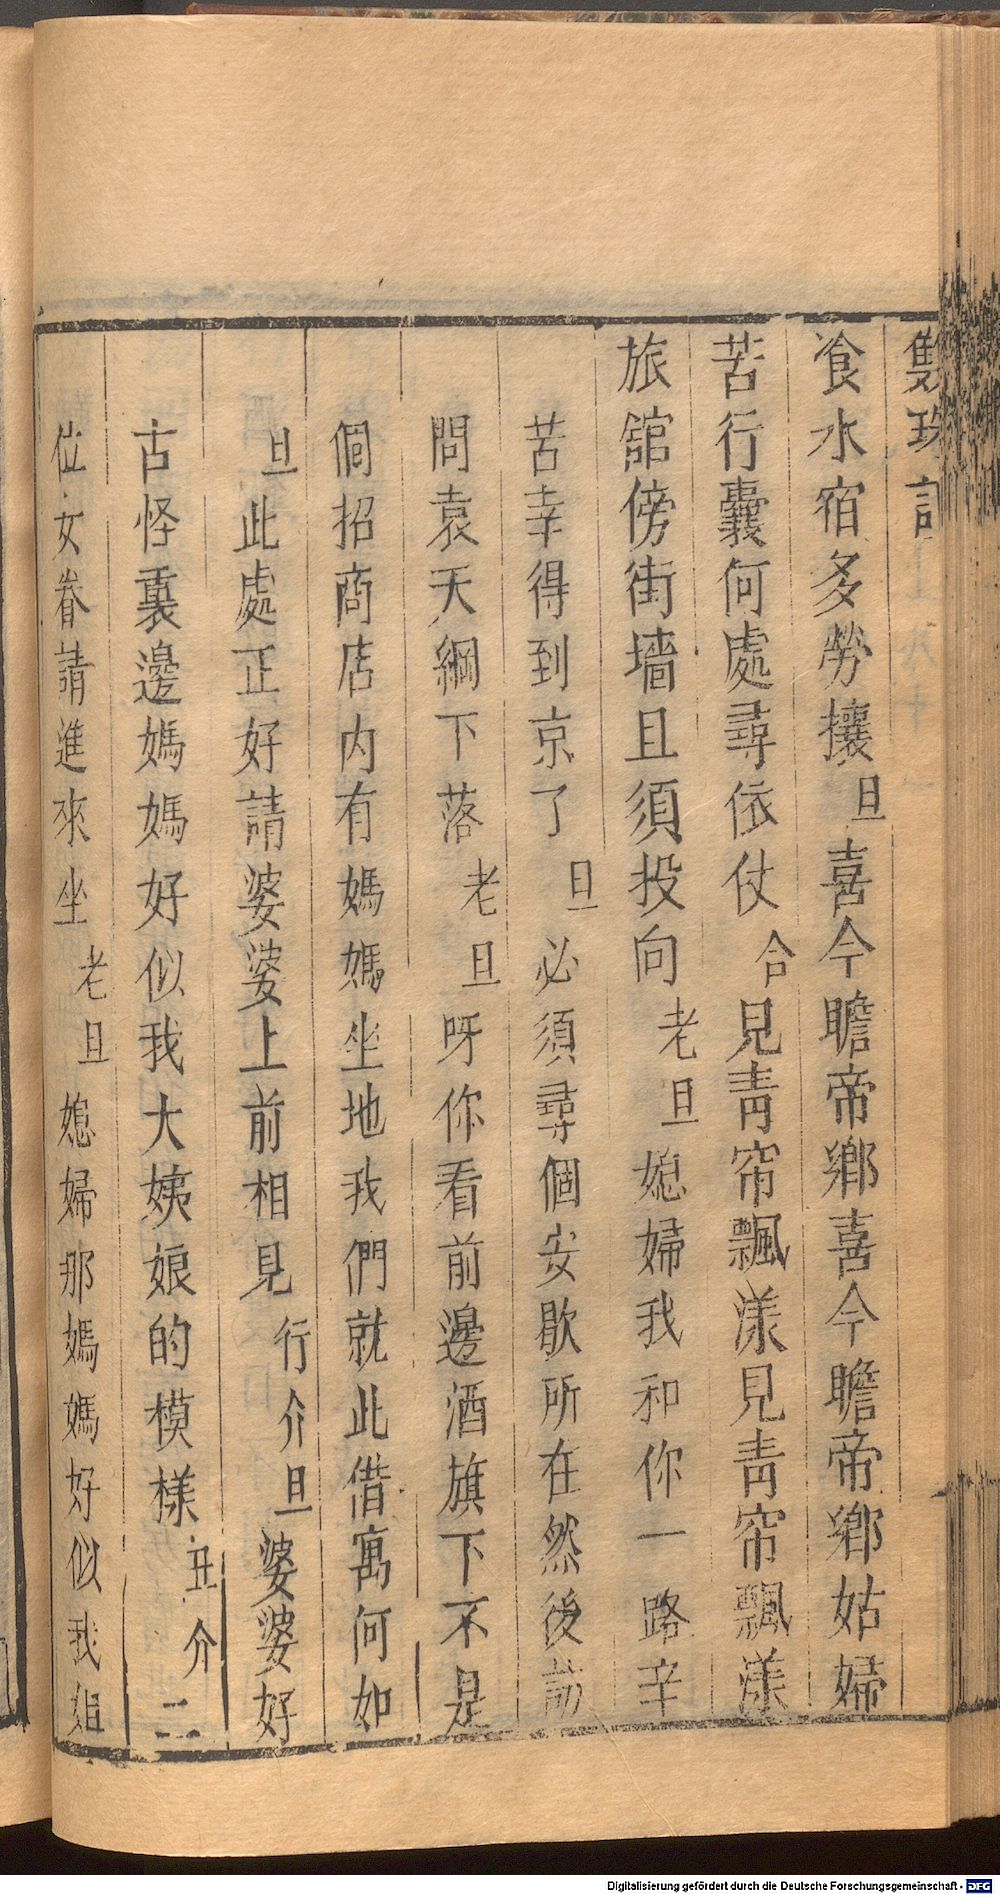 雙珠記
飡水宿多勞攘旦喜今瞻帝鄉喜今瞻帝鄉姑婦
苦行囊何處尋依仗合見青帘飄漾見青帘飄漾
旅舘傍街墻且須投向老旦媳婦我和你一路辛
苦幸得到京了旦必須尋個安歇所在然後訪
問袁天綱下落老旦呀你看前邊酒旗下不是
個招商店内有媽媽坐地我們就此借寓何如
旦此處正好請婆婆上前相見行介旦婆婆好
古怪裏邊媽媽好似我大姨娘的模樣丑介二
位女眷請進來坐老旦媳婦那媽媽好似我姐
Digitalisierung gefördert durch die Deutsche Forschungsgemeinschaft - DFG